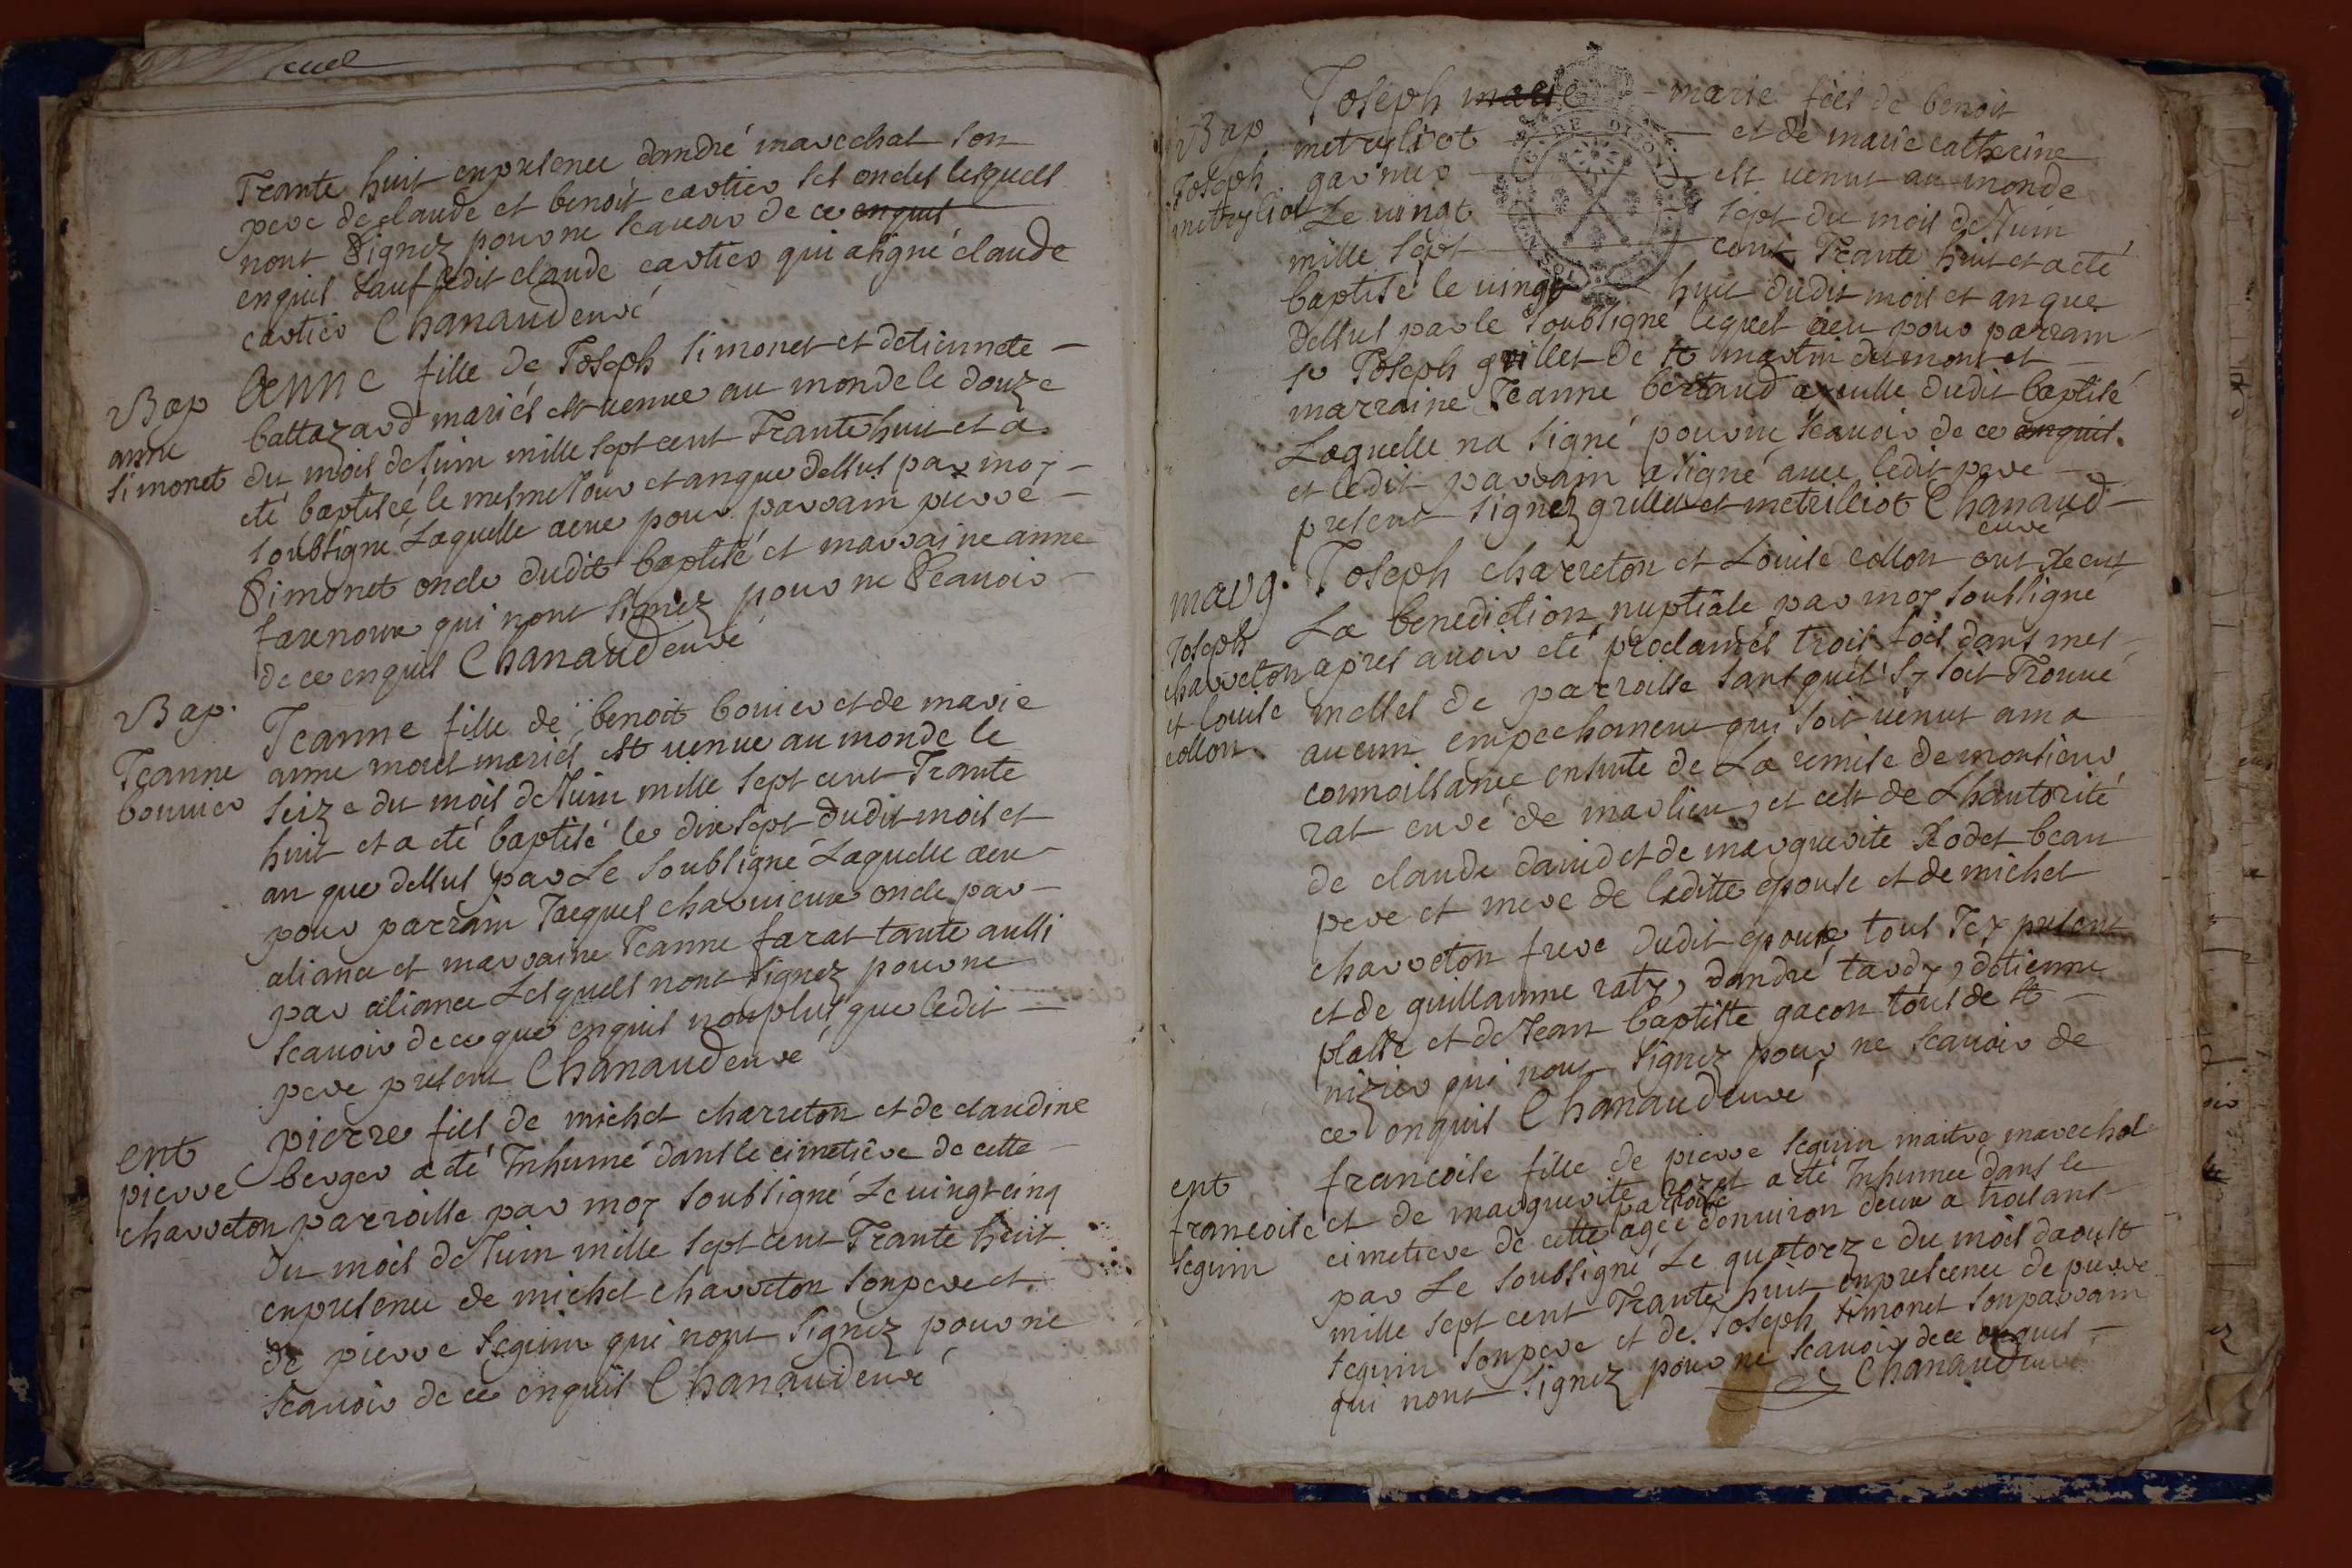 Trante huit enpresence dandré marechal son
pere de claude et benoit cartier ses oncles lesquels
nont Signez pour ne scavoir de ce enquis
enquis sauf ledit claude cartier qui asigné claude
cartier Chanaud curé
Bap
anne
simonet
Anne fille de Joseph simonet et detiennete
baltazard mariés est venue au monde le douze
du mois de Juin mille sept cent Trante huit et a
eté baptisée le mesme Jour et an que dessus par moy
soubsigné Laquelle aeue pour parrain pierre
Simonet oncle dudit baptisé et marraine anne
farenoux qui nont signez pour ne Scavoir
de ce enquis Chanaud curé
Bap.
Jeanne
bouvier
Jeanne fille de benoit bouier et de marie
anne morel mariés est venue au monde le
seize du mois de Juin mille sept cent Trante
huit et a eté baptisé le dix sept dudit mois et
an que dessus par Le soubsigné Laquelle aeu
pour parrain Jacques charvieux oncle par
aliance et marraine Jeanne farat tante aussi
par aliance Lesquels nont signez pour ne
scavoir de ce que enquis nonplus que ledit
pere present Chanaud curé
ent
pierre
charreton
pierre fils de michel charreton et de claudine
berger a eté Inhumé dans le cimetiere de cette
parroisse par moy soubsigné Le vingt cinq
du mois de Juin mille sept cent Trante huit
enpresence de michel charreton son pere et
de pierre seguin qui nont signez pour ne
scavoir de ce enquis Chanaud curé
Bap
Joseph
metrylliot
Joseph marie marie fils de benoit
metrylliot et de marie catherine
garnier est venut au monde
Le vingt sept du mois de Juin
mille sept cent Trante huit et a eté
baptisé le vingt huit dudit mois et an que
dessus par le soubsigné lequel aeu pour parrain
sr Joseph grillet de st martin dumont et
marraine Jeanne bertaud ayeulle dudit baptisé
Laquelle na signé pour ne scavoir de ce enquis
et ledit parrain a signé avec ledit pere
present signez grillet et metrilliot Chanaud
curé
marg.
Joseph
charreton
et louise
collon
Joseph charreton et Louise collon ont Recut
La benediction nuptiale par moy soubsigné
apres avoir eté proclamés trois fois dans mes
messes de parroisse sans quil sy soit Trouvé
aucun empechement qui soit venut a ma
connoissance ensuite de La remise de monsieur
rat curé de marlieu, et cest de Lhautorité
de claude david et de marguerite Rodet beau
pere et mere de laditte epouse et de michel
charreton frere dudit epoux tous Jcy present
et de guillaume raty, dandré tardy, detienne
plasse et de Jean baptiste gacon tous de st
nizier qui nont signez pour ne scavoir de
ce enquis Chanaud curé
ent
francoise
seguin
francoise fille de pierre seguin maitre marechal
et de marguerite a eté Inhumée dans le
parroisse
cimetiere de cette agée denviron deux a trois ans
par Le soubsigné Le quatorze du mois daoust
mille sept cent Trante huit enpresence de pierre
seguin son pere et de Joseph simonet son parrain
qui nont signez pour ne scavoir de ce enquis
Chanaud curé